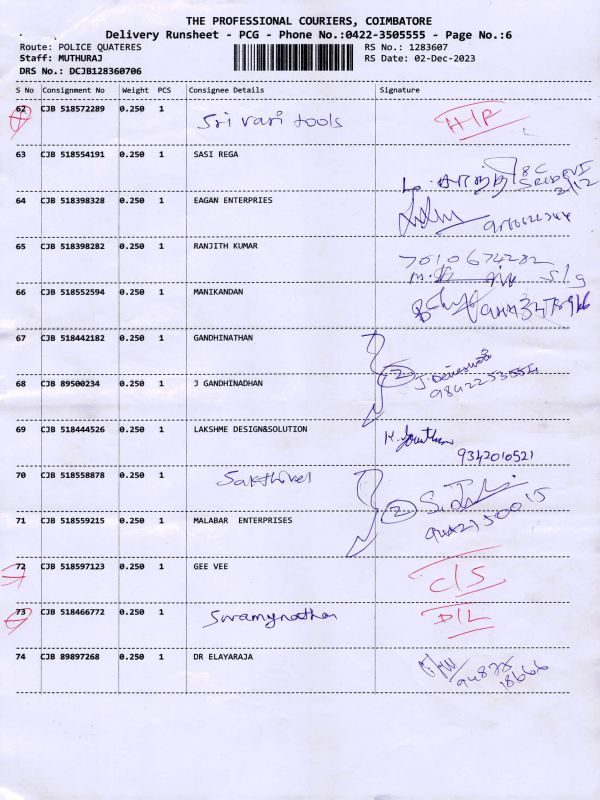 THE PROFESSIONAL COURIERS, COIMBATORE
Delivery Runsheet - PCG - Phone No.:0422-3505555 - Page No.:6
Route: POLICE QUATERES RS No.: 1283607
Staff: MUTHURAJ RS Date: 02-Dec-2023
DRS No.: DCJB128360706
S No Consignment No Weight PCS Consignee Details Signature
62 CJB 518572289 0.250 1 Sri vari tools H/P
63 CJB 518554191 0.250 1 SASI REGA
64 CJB 518398328 0.250 1 EAGAN ENTERPRIES
65 CJB 518398282 0.250 1 RANJITH KUMAR
7010674282
66 CJB 518552594 0.250 1 MANIKANDAN
67 CJB 518442182 0.250 1 GANDHINATHAN
2
68 CJB 89500234 0.250 1 J GANDHINADHAN
69 CJB 518444526 0.250 1 LAKSHME DESIGN&SOLUTION
9342010521
70 CJB 518558878 0.250 1 Sakthivel
2
71 CJB 518559215 0.250 1 MALABAR ENTERPRISES
72 CJB 518597123 0.250 1 GEE VEE C/S
73 CJB 518466772 0.250 1 Swamynathan D/L
74 CJB 89897268 0.250 1 DR ELAYARAJA